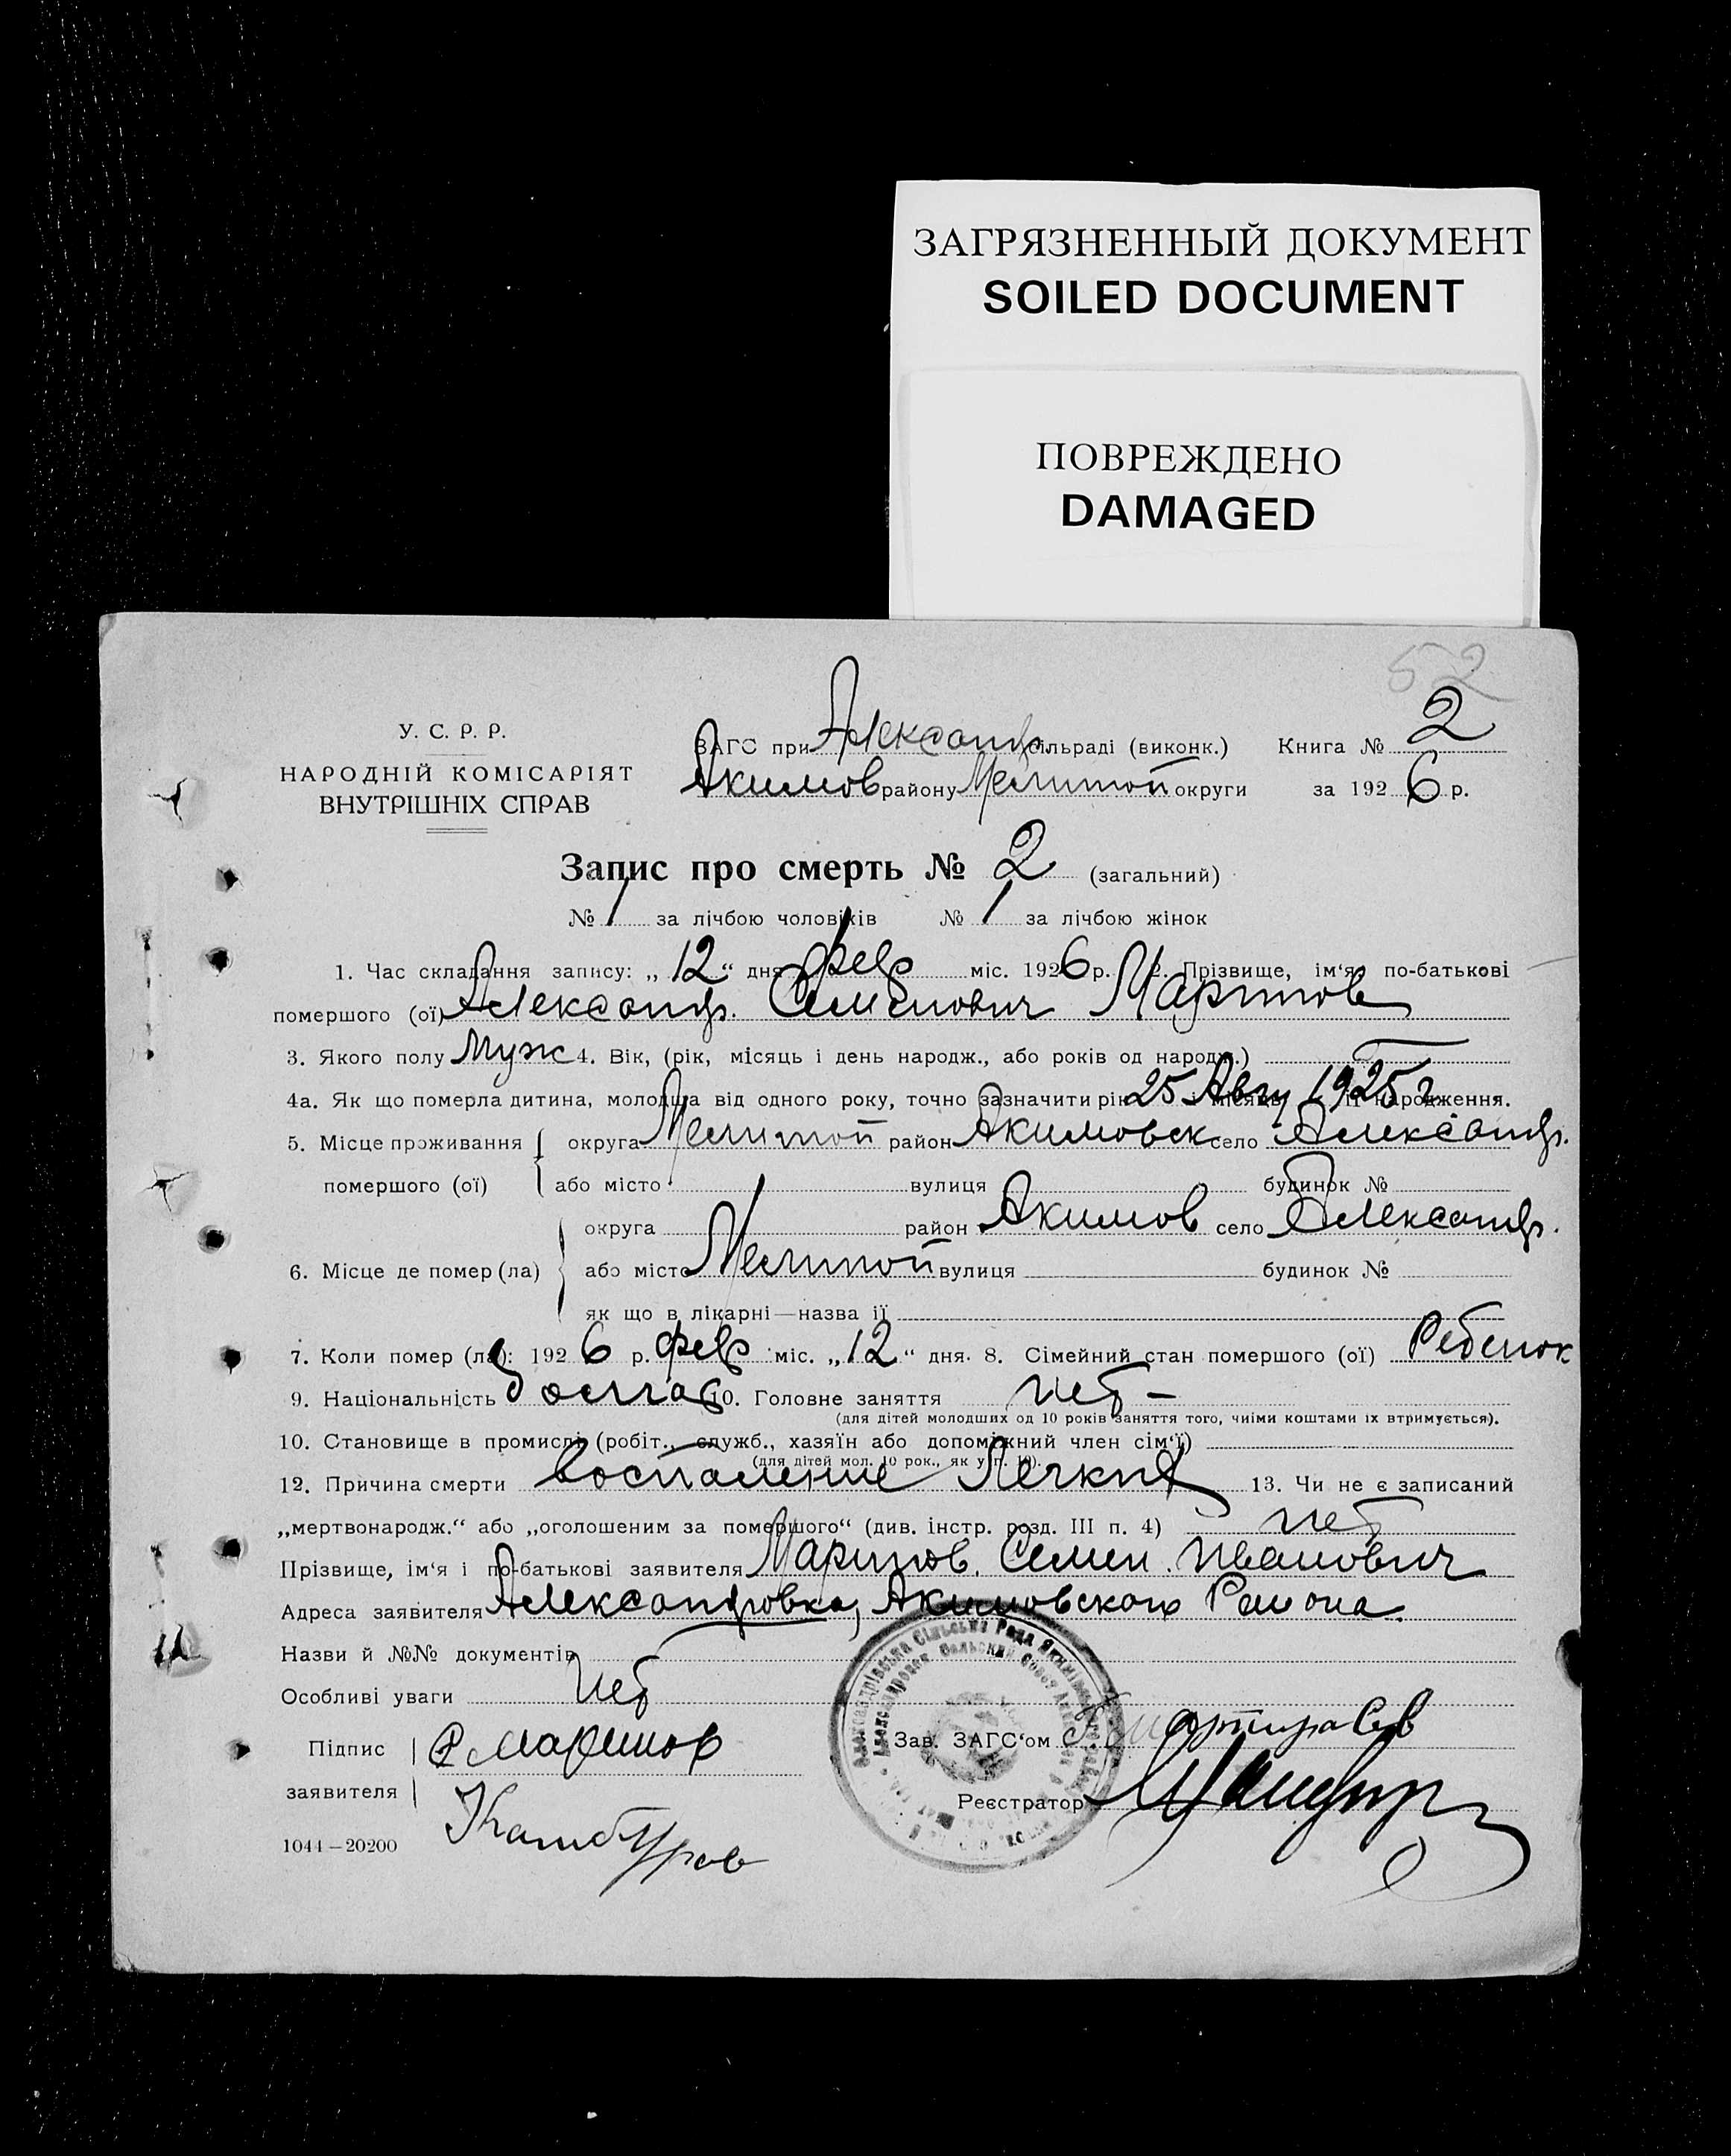 ЗАГРЯЗНЕННЫЙ ДОКУМЕНТ
SOILED DOCUMENT
ПОВРЕЖДЕНО
DAMAGED
52
У. С. Р. Р.
НАРОДНІЙ КОМІСАРІЯТ
ВНУТРІШНІХ СПРАВ
ЗАГС при Александр. сільраді (виконк.) Книга № 2
Акимов району Мелитой округи за 1926 р.
Запис про смерть № 2 (загальний)
№ 1 за лічбою чоловіків № 1 за лічбою жінок
1. Час складання запису: „12“ дня фев міс. 1926 р. 2. Прізвище, ім‘я, по-батькові
помершого (ої) Александр. Семенович
3. Якого полу Муж 4. Вік, (рік, місяць і день народж., або років од народж.)
4а. Як що померла дитина, молодша від одного року, точно зазначити рік 25 Авгу 1925 г. і місяць її народження.
5. Місце проживання округа Мелитой район Акимовск село Александр.
помершого (ої) або місто вулиця будинок №
округа район Акимов село Александр.
6. Місце де помер (ла) або місто Мелитой вулиця будинок №
як що в лікарні—назва її
7. Коли помер (ла): 1926 р. фев міс. „12“ дня. 8. Сімейний стан помершого (ої) Ребенок
9. Національність болгар 10. Головне заняття нет —
(для дітей молодших од 10 років заняття того, чиїми коштами їх втримується).
10. Становище в промислі (робіт., служб., хазяїн або допоміжний член сім‘ї)
(для дітей мол. 10 рок., як у п. 10).
12. Причина смерти воспаление Легких 13. Чи не є записаний
„мертвонародж.“ або „оголошеним за помершого“ (див. інстр. розд. III п. 4) нет
Прізвище, ім‘я і по-батькові заявителя Семен. Иванович
Адреса заявителя Александровка, Акимовского Района.
Назви й №№ документів
Особливі уваги Нет
Підпис
заявителя
Зав. ЗАГС‘ом
Реєстратор
1044—20200